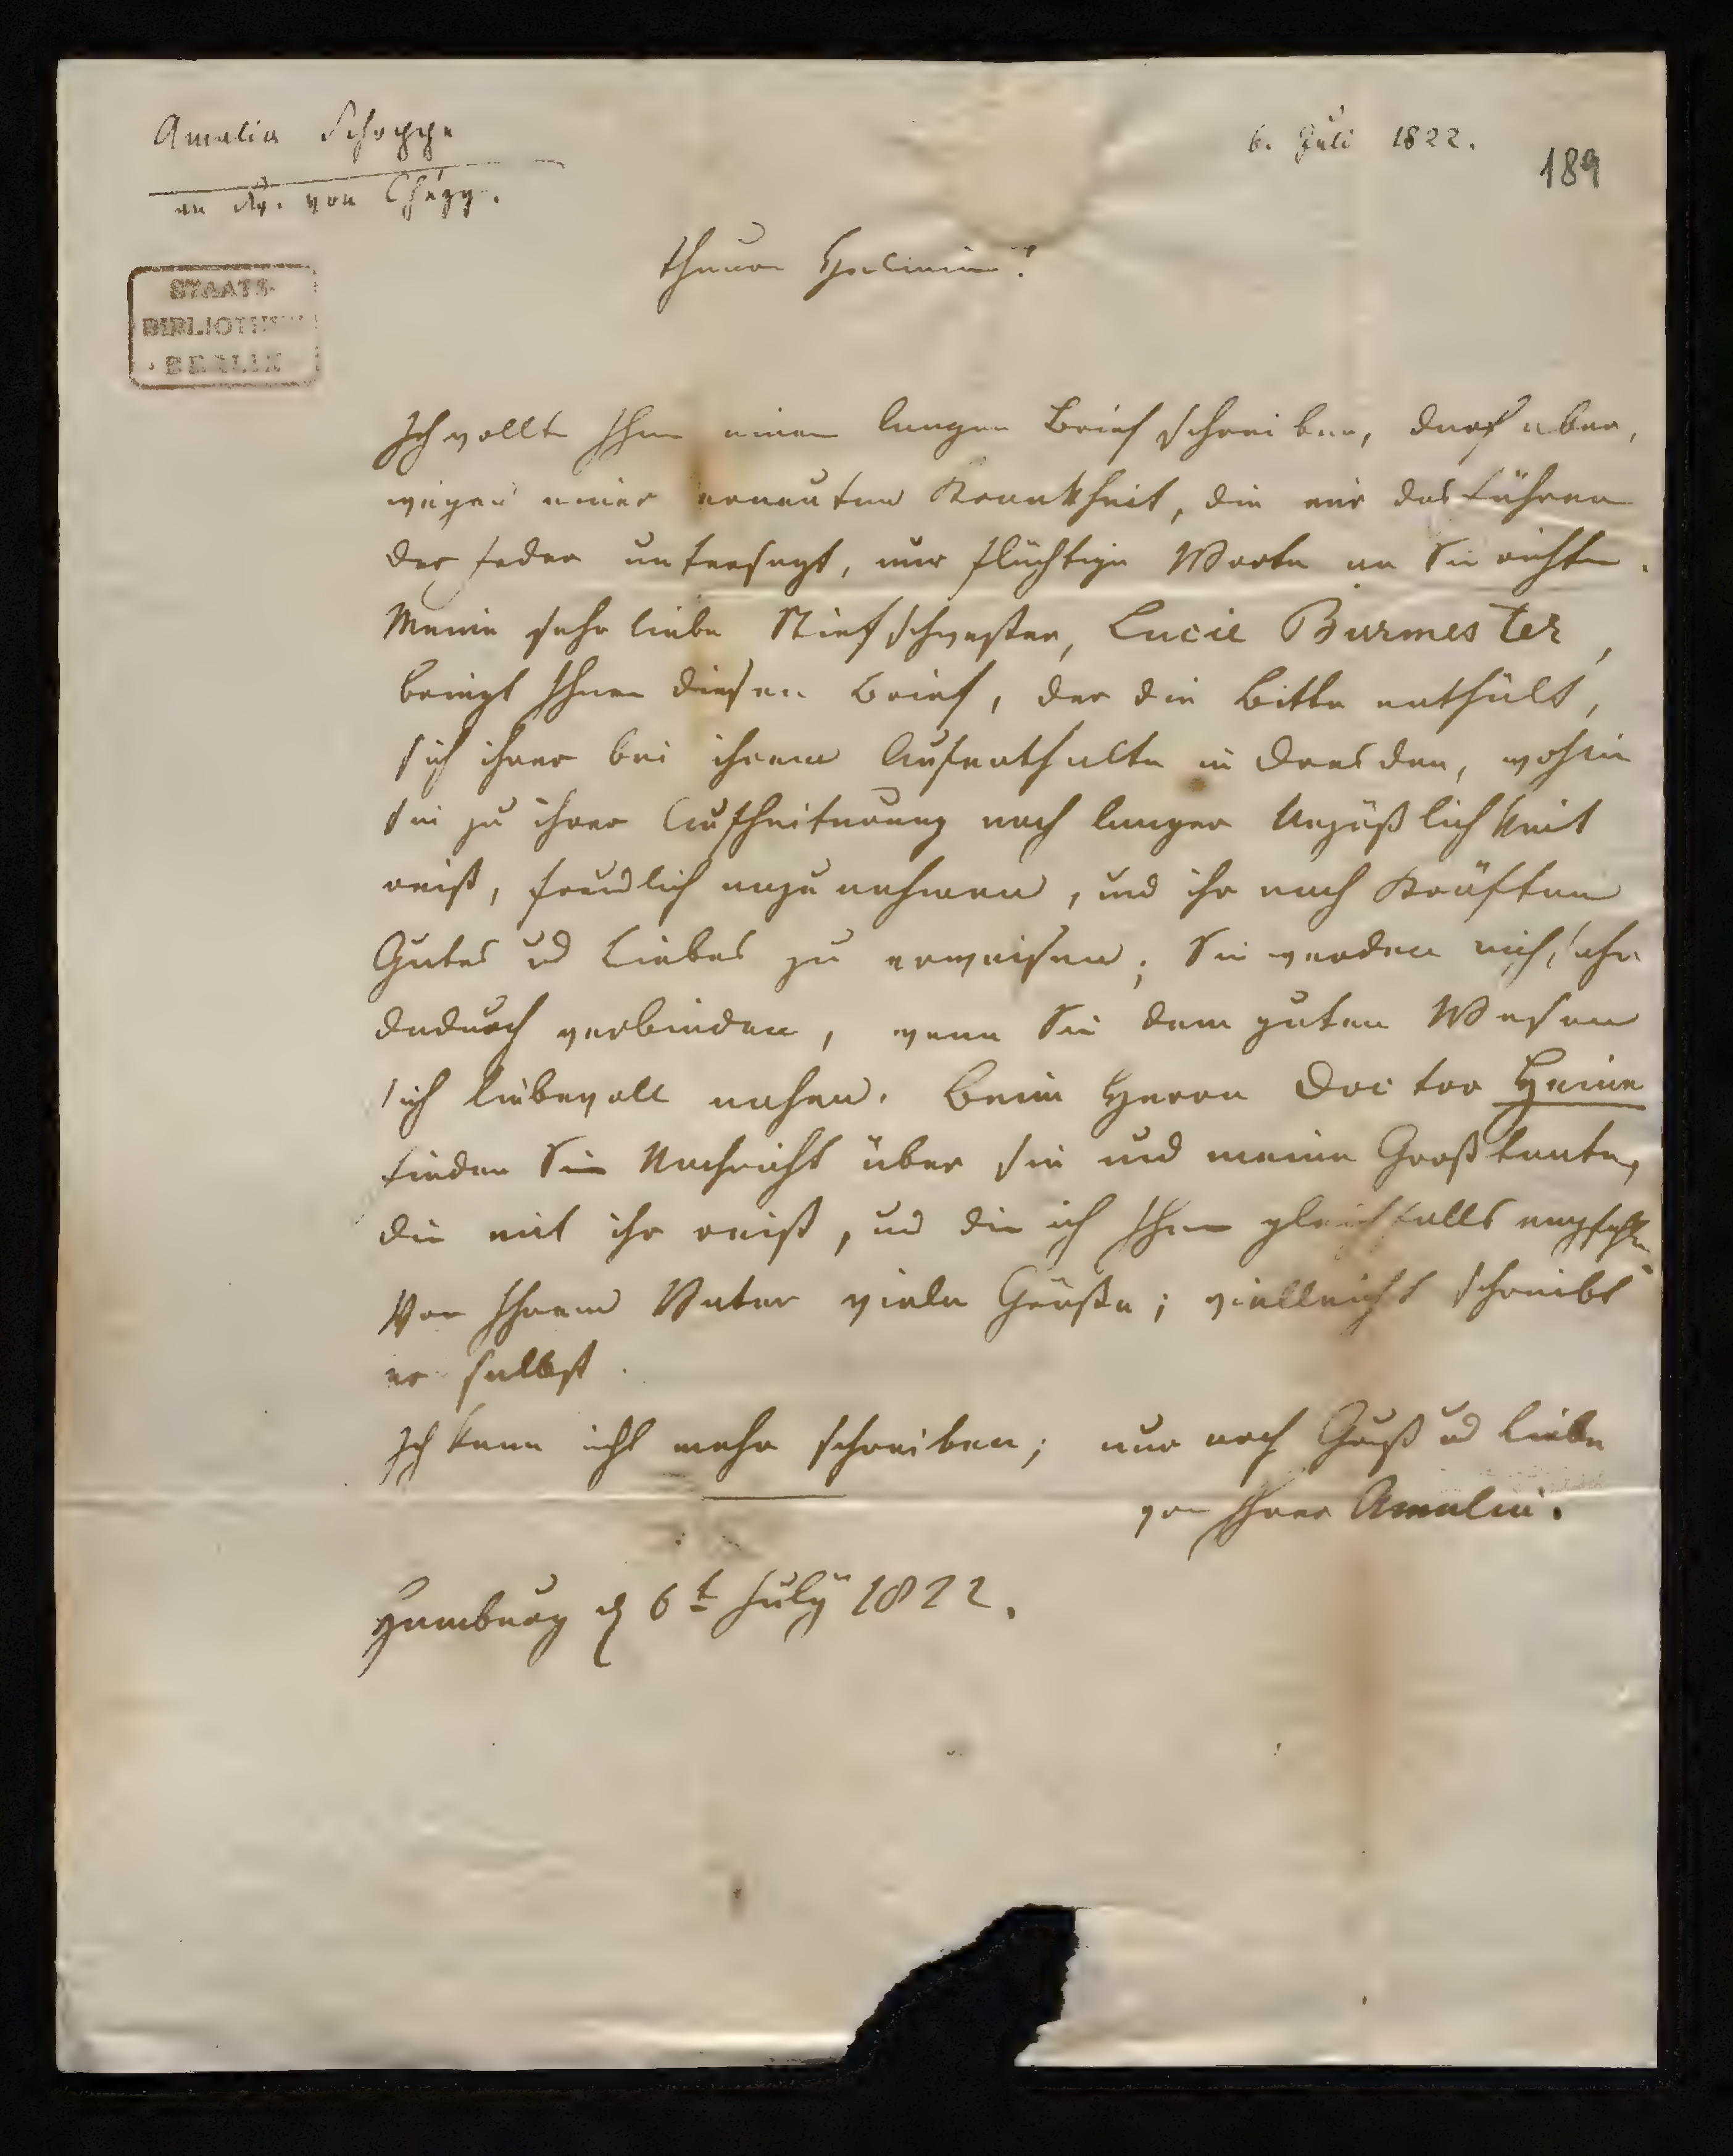 Amalia Schoppe
an Fr. von Chézy.
6. Juli 1822.
189
STAATS-
BIBLIOTHEK
BERLIN
Theure Helmina!
Ich wollte Ihnen einen langen Brief schreiben, darf aber,
wegen einer erneuten Krankheit, die mir das Führen
der Feder untersagt, nur flüchtige Worte an Sie richten.
Meine sehr liebe Stiefschwester, Lucie Burmester,
bringt Ihnen diesen Brief, der die Bitte enthält,
sich ihrer bei ihrem Aufenthalte in Dresden, wohin
sie zu ihrer Aufheiterung nach langer Unpäßlichkeit
reist, freundlich anzunehmen, und ihr nach Kräften
Gutes und Liebes zu erweisen; Sie werden mich sehr
dadurch verbinden, wenn Sie dem guten Wesen
sich liebevoll nahen. Beim Herrn Doctor Heine
finden Sie Nachricht über sie und meine Großtante,
die mit ihr reist, und die ich Ihnen gleichfalls empfehle.
Von Ihrem Vater viele Grüße; vielleicht schreibt
er selbst.
Ich kann nicht mehr schreiben; nur noch Gruß und Liebe
von Ihrer Amalie.
Hamburg d 6t July 1822.